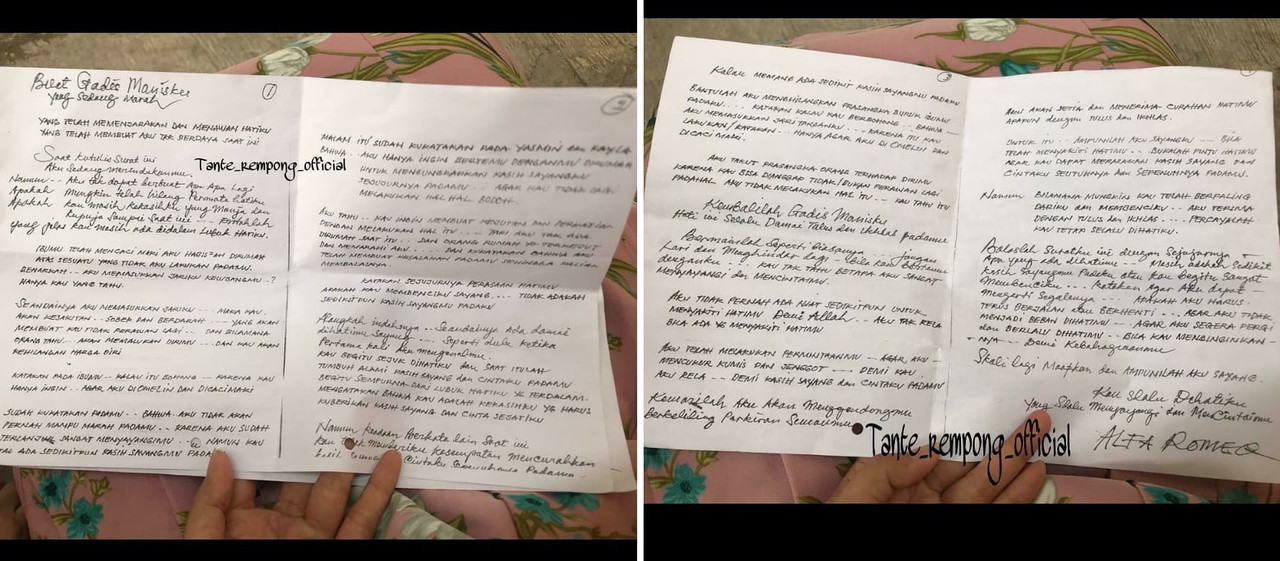 Buat Gadis Manisku
yang Sedang Marah
1
YANG TELAH MEMENJARAKAN DAN MENAWAN HATIKU
YANG TELAH MEMBUAT AKU TAK BERDAYA SAAT INI
Saat kutulis Surat ini
Aku Sedang Merindukanmu.
Namun -- Aku tak dapat berbuat Apa Apa Lagi
Apakah Mungkin telah Hilang Permata hatiku
Apakah kau masih kekasihku Yang Manja dan
kupuja Sampai Saat ini ---- Entahlah
Yang jelas kau masih ada didalam Lubuk Hatiku.
IBUMU TELAH MENCACI MAKI AKU HABIS2AN DIRUMAH
ATAS SESUATU YANG TIDAK AKU LAKUKAN PADAMU.
BENARKAH -- AKU MEMASUKKAN JARIKU KEDALAMMU ..?
HANYA KAU YANG TAHU.
SEANDAINYA AKU MEMASUKKAN JARIKU .. MAKA KAU
AKAN KESAKITAN .. SOBEK DAN BERDARAH ---- YANG AKAN
MEMBUAT KAU TIDAK PERAWAN LAGI ---- DAN BAGAIMANA
ORANG TAHU -- AKAN MEMALUKAN DIRIMU -- DAN KAU AKAN
KEHILANGAN HARGA DIRI
KATAKAN PADA IBUMU -- KALAU ITU BOHONG -- KARENA KAU
HANYA INGIN -- AGAR AKU DI OMELIN DAN DICACIMAKI
SUDAH KUKATAKAN PADAMU -- BAHWA AKU TIDAK AKAN
PERNAH MAMPU MARAH PADAMU -- KARENA AKU SUDAH
TERLANJUR SANGAT MENYAYANGIMU -- NAMUN KAU
ADA SEDIKITPUN KASIH SAYANGMU
Tante_rempong_official
2
MALAM ITU SUDAH KUKATAKAN PADA YASMIN dan KAYLA
BAHWA .. AKU HANYA INGIN BERTEMU DENGANMU DIRUMAH
UNTUK MENGUNGKAPKAN KASIH SAYANGKU
SEJUJURNYA PADAMU -- AGAR KAU TIDAK LAGI
MELAKUKAN HAL HAL BODOH.
AKU TAHU .. KAU INGIN MEMBUAT KEJUTAN DAN PERHATIAN
DENGAN MELAKUKAN HAL ITU --- TAPI AKU TAK ADA
DIRUMAH SAAT ITU .. DAN ORANG RUMAH YG TERKEJUT
DAN MEMARAHI AKU --- DAN KUKATAKAN BAHWA AKU
TELAH MEMBUAT KESALAHAN PADAMU SEHINGGA KALIAN
MEMBALASNYA.
KATAKAN SEJUJURNYA PERASAAN HATIMU
APAKAH KAU MEMBENCIKU SAYANG ... TIDAK ADAKAH
SEDIKITPUN KASIH SAYANGMU PADAKU
Alangkah indahnya -- Seandainya Ada damai
dihatimu Sayang --- Seperti dulu ketika
Pertama kali Aku mengenalmu.
KAU BEGITU SEJUK DIHATIKU dan SAAT ITULAH
TUMBUH ALAMI KASIH SAYANG dan CINTAKU PADAMU
BEGITU SEMPURNA DARI LUBUK HATIKU YG TERDALAM.
MENGATAKAN BAHWA KAU ADALAH KEKASIHKU YG HARUS
KUBERIKAN KASIH SAYANG DAN CINTA SEJATIKU
Namun Berkata lain Saat ini
kau kesempatan Mencurahkan
Cintaku Sepenuhnya Padamu
3
KALAU MEMANG ADA SEDIKIT KASIH SAYANGMU PADAKU
BANTULAH AKU MENGHILANGKAN PRASANGKA BURUK IBUMU
PADAKU ... KATAKAN KALAU KAU BERBOHONG .. BAHWA --
AKU MEMASUKKAN JARI TANGANKU -- KARENA ITU KAU
LAKUKAN/KATAKAN .. HANYA AGAR AKU DI OMELIN DAN
DICACI MAKI.
AKU TAKUT PRASANGKA ORANG TERHADAP DIRIMU
KARENA KAU BISA DIANGGAP TIDAK/BUKAN PERAWAN LAGI
PADAHAL AKU TIDAK MELAKUKAN HAL ITU -- KAU TAHU ITU
Kembalilah Gadis Manisku
Hati ini Selalu Damai Tulus dan ikhlas padamu
Bermainlah Seperti biasanya .. Jangan
Lari dan Menghindar lagi -- bila kau bertemu
denganku. -- KAU TAK TAHU BETAPA AKU SANGAT
MENYAYANGI dan MENCINTAIMU.
AKU TIDAK PERNAH ADA NIAT SEDIKITPUN UNTUK
MENYAKITI HATIMU Demi Allah -- AKU TAK RELA
BILA ADA YG MENYAKITI HATIMU
AKU TELAH MELAKUKAN PERMINTAANMU -- AGAR AKU
MENCUKUR KUMIS DAN JENGGOT --- DEMI KAU.
AKU RELA -- DEMI KASIH SAYANG dan CINTAKU PADAMU
Kemarilah Aku Akan Menggendongmu
Berkeliling Parkiran Semaumu
AKU AKAN SETIA dan MENERIMA CURAHAN HATIMU
APAPUN dengan TULUS dan IKHLAS.
UNTUK ITU -- AMPUNILAH AKU SAYANGKU --- BILA
TELAH MENYAKITI HATIMU -- BUKALAH PINTU HATIMU
AGAR KAU DAPAT MERASAKAN KASIH SAYANG DAN
CINTAKU SEUTUHNYA DAN SEPENUHNYA PADAMU.
Namun BILAMANA MUNGKIN KAU TELAH BERPALING
DARIKU dan MEMBENCIKU .. AKU TERIMA
DENGAN TULUS dan IKHLAS ... PERCAYALAH.
KAU TETAP SELALU DIHATIKU.
Balaslah Suratku ini dengan Sejujurnya
Apa yang ada dihatimu --- Masih adakah Sedikit
kasih Sayangmu Padaku atau kau begitu Sangat
Membenciku ... Katakan Agar Aku dapat
Mengerti Segalanya --- APAKAH AKU HARUS
TERUS BERJALAN atau BERHENTI .. AGAR AKU TIDAK
MENJADI BEBAN DIHATIMU -- AGAR AKU SEGERA PERGI
dan BERLALU DIHATIMU -- BILA KAU MENGINGINKAN-
-NYA -- Demi Kebahagiaanmu
Skali lagi Maafkan dan AMPUNILAH AKU SAYANG.
Kau Slalu Dihatiku
Yang Slalu Menyayangi dan Mencintaimu
ALFA ROMEO
Tante_rempong_official